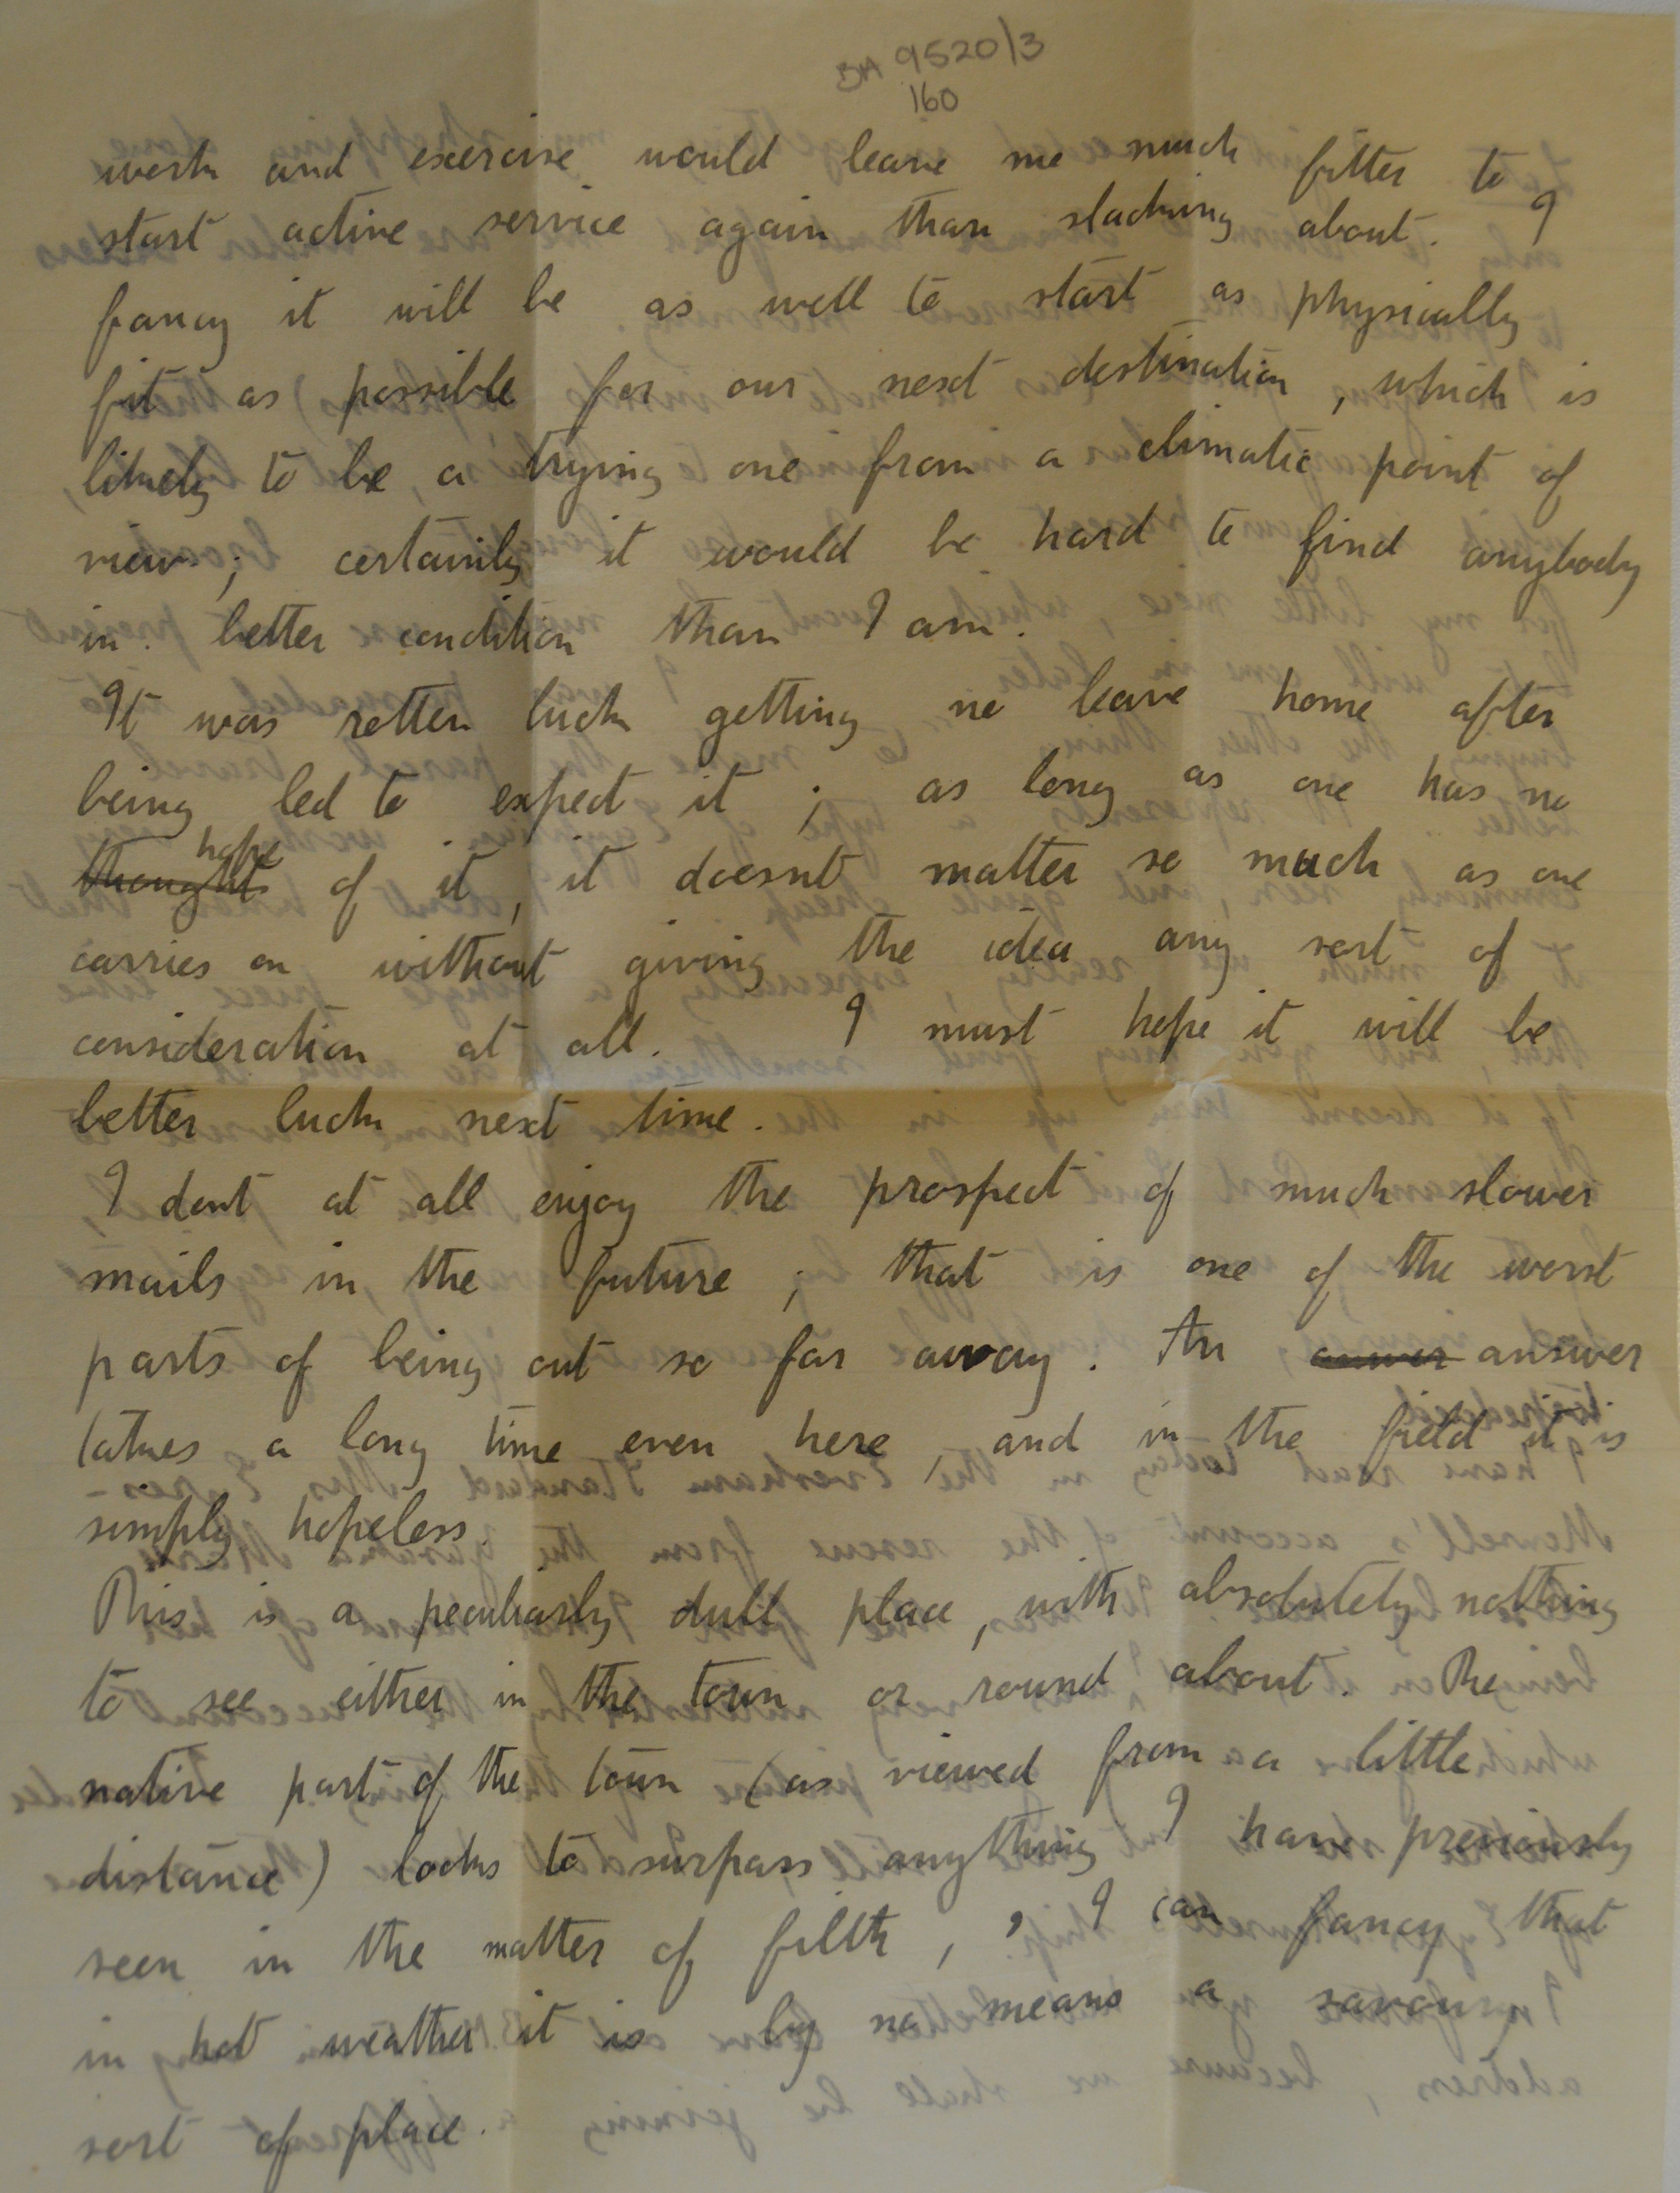 BA 9520/3
160
work and exercise would leave me much fitter to
start active service again than slacking about. I
fancy it will be as well to start as physically
fit as possible for our next destination, which is
likely to be a trying one from a climatic point of
view; certainly it would be hard to find anybody
in better condition than I am.
It was rotten luck getting no leave home after
being led to expect it; as long as one has no
thought hope of it, it doesnt matter so much as one
carries on without giving the idea any sort of
consideration at all. I must hope it will be
better luck next time.
I dont at all enjoy the prospect of much slower
mails in the future; that is one of the worst
parts of being out so far away. An answer
takes a long time even here, and in the field it is
simply hopeless.
This is a peculiarly dull place, with absolutely nothing
to see either in the town or round about. The
native part of the town (as viewed from a little
distance) looks to surpass anything I have previously
seen in the matter of filth, & I can fancy that
in hot weather it is by no means a savoury
sort of place.